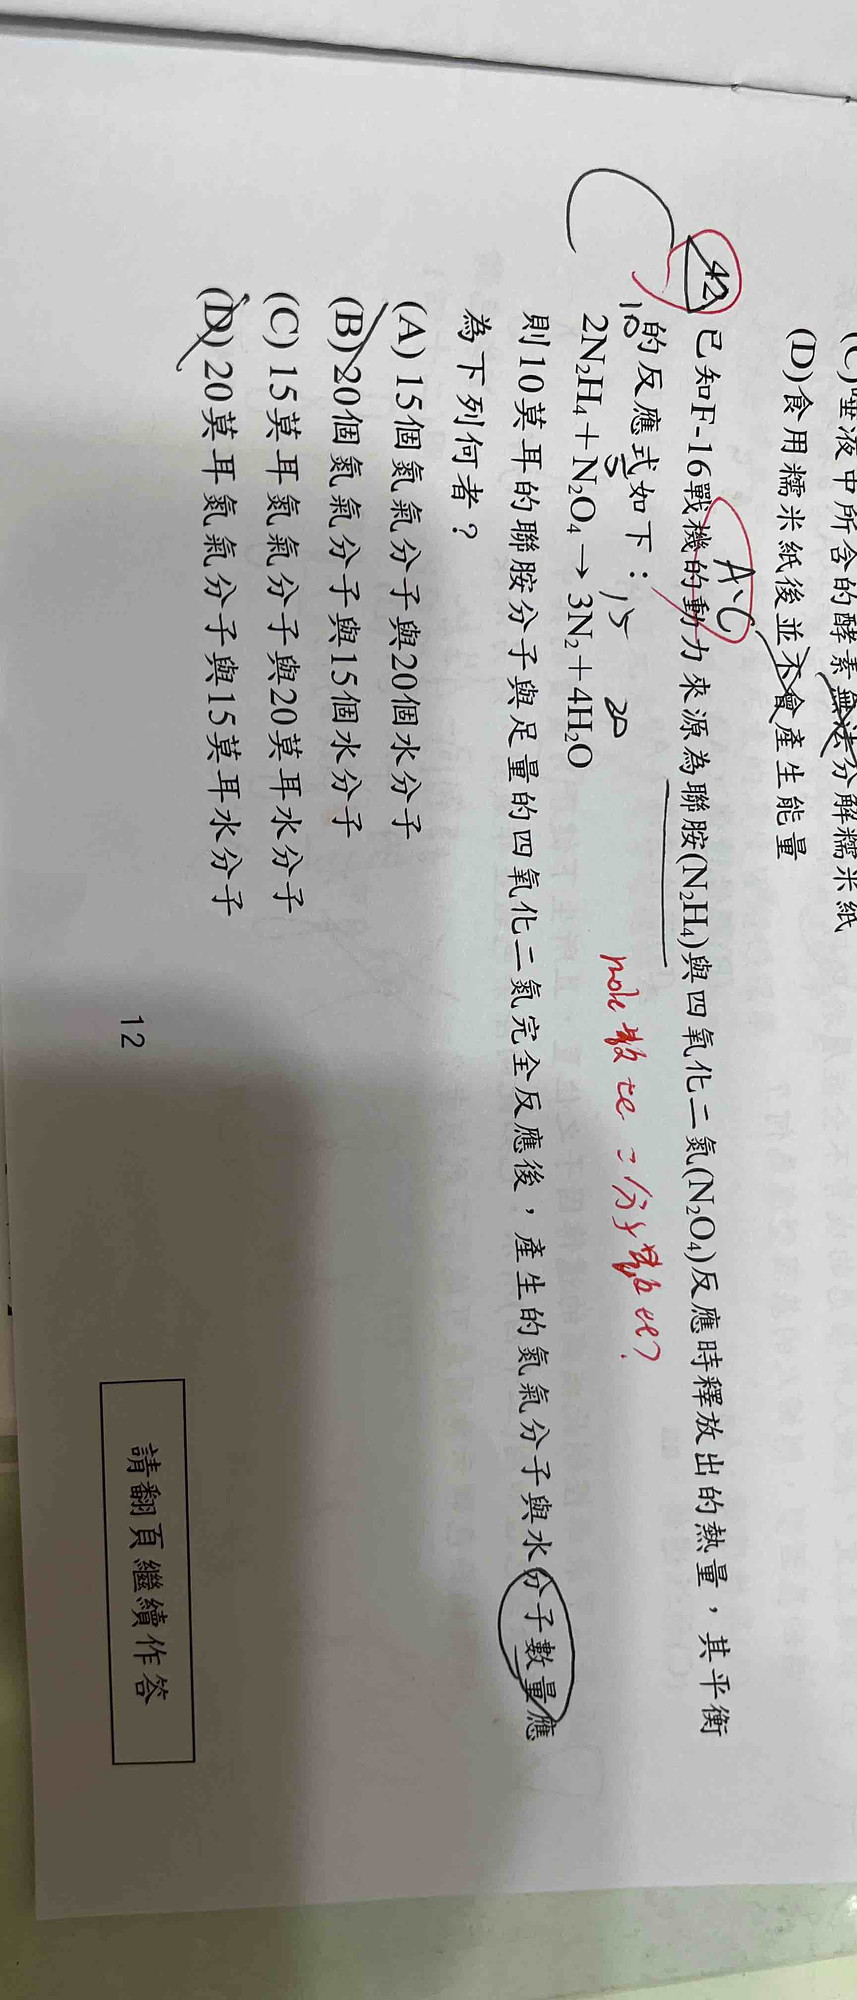 (C)唾液中所含的酵素無法分解糯米紙
(D)食用糯米紙後並不會產生能量
A、C
42 已知F-16戰機的動力來源為聯胺(N₂H₄)與四氧化二氮(N₂O₄)反應時釋放出的熱量，其平衡
的反應式如下：
mole數比=分子數比?
10 5 15 20
2N₂H₄＋N₂O₄→3N₂＋4H₂O
則10莫耳的聯胺分子與足量的四氧化二氮完全反應後，產生的氮氣分子與水分子數量應
為下列何者？
(A) 15個氮氣分子與20個水分子
(B) 20個氮氣分子與15個水分子
(C) 15莫耳氮氣分子與20莫耳水分子
(D) 20莫耳氮氣分子與15莫耳水分子
12
請翻頁繼續作答